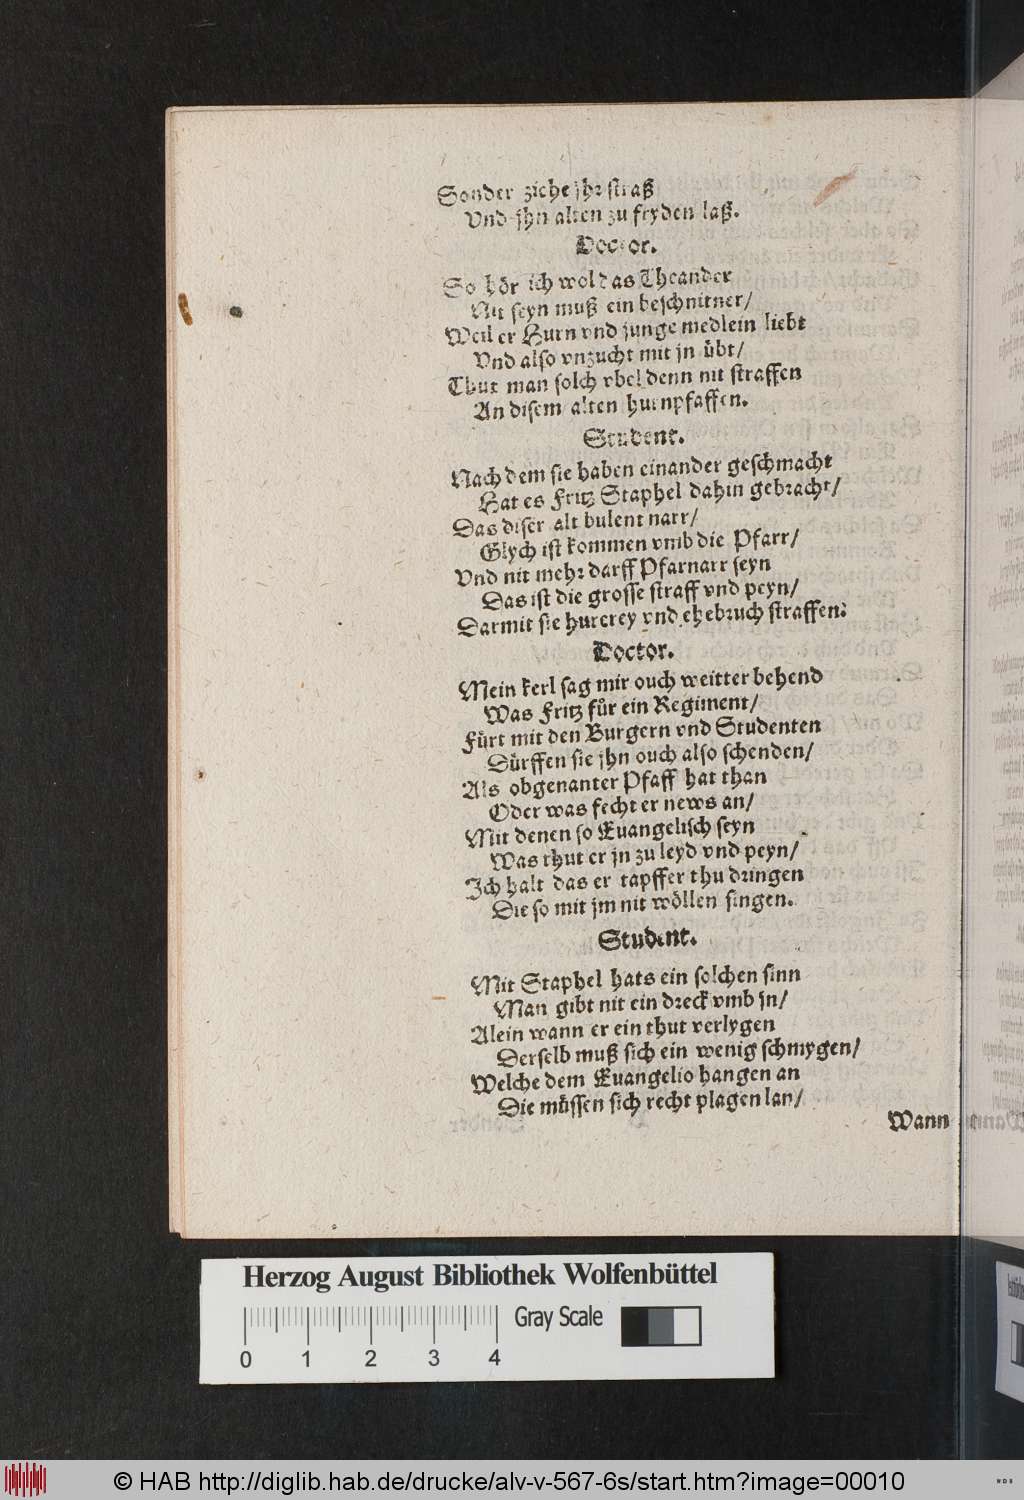 Sonder ziehe jhr straß
Vnd jhn alten zu fryden laß.
Doctor.
So hör ich wol das Theander
Nit seyn muß ein beschnitner/
Weil er Hurn vnd junge medlein liebt
Vnd also vnzucht mit jn übt/
Thut man solch vbel denn nit straffen
An disem alten hurnpfaffen.
Student.
Nach dem sie haben einander geschmacht
Hat es Fritz Staphel dahin gebracht/
Das diser alt bulent narr/
Glych ist kommen vmb die Pfarr/
Vnd nit mehr darff Pfarnarr seyn
Das ist die grosse straff vnd peyn/
Darmit sie hurerey vnd ehebruch straffen.
Doctor.
Mein kerl sag mir ouch weitter behend
Was Fritz für ein Regiment/
Fürt mit den Burgern vnd Studenten
Dürffen sie jhn ouch also schenden/
Als obgenanter Pfaff hat than
Oder was fecht er news an/
Mit denen so Euangelisch seyn
Was thut er jn zu leyd vnd peyn/
Ich halt das er tapffer thu dringen
Die so mit jm nit wöllen singen.
Student.
Mit Staphel hats ein solchen sinn
Man gibt nit ein dreck vmb jn/
Alein wann er ein thut verlygen
Derselb muß sich ein wenig schmygen/
Welche dem Euangelio hangen an
Die müssen sich recht plagen lan/
Wann
Herzog August Bibliothek Wolfenbüttel
Gray Scale
0 1 2 3 4
© HAB http://diglib.hab.de/drucke/alv-v-567-6s/start.htm?image=00010